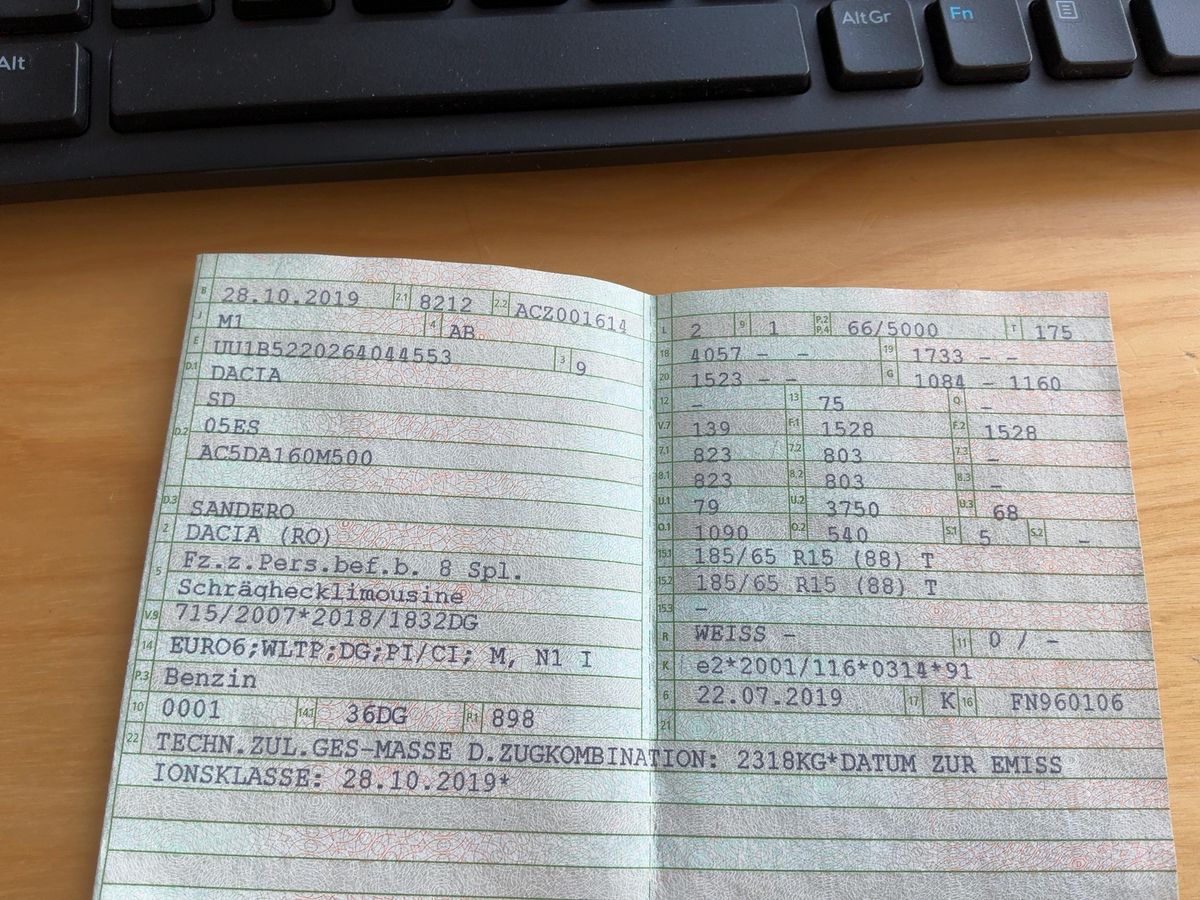 Alt
AltGr
Fn
B 28.10.2019 2.1 8212 2.2 ACZ001614
J M1 4 AB
E UU1B5220264044553 3 9
D.1 DACIA
SD
D.2 05ES
AC5DA160M500
D.3 SANDERO
2 DACIA (RO)
5 Fz.z.Pers.bef.b. 8 Spl.
Schräghecklimousine
V.9 715/2007*2018/1832DG
14 EURO6;WLTP;DG;PI/CI; M, N1 I
P.3 Benzin
10 0001 14.1 36DG P.1 898
L 2 9 1 P.2 P.4 66/5000 T 175
18 4057 - - 19 1733 - -
20 1523 - - G 1084 - 1160
12 - 13 75 Q -
V.7 139 F.1 1528 F.2 1528
7.1 823 7.2 803 7.3 -
8.1 823 8.2 803 8.3 -
U.1 79 U.2 3750 U.3 68
O.1 1090 O.2 540 S.1 5 S.2 -
15.1 185/65 R15 (88) T
15.2 185/65 R15 (88) T
15.3 -
R WEISS - 11 0 / -
K e2*2001/116*0314*91
6 22.07.2019 17 K 16 FN960106
21
22 TECHN.ZUL.GES-MASSE D.ZUGKOMBINATION: 2318KG*DATUM ZUR EMISS
IONSKLASSE: 28.10.2019*